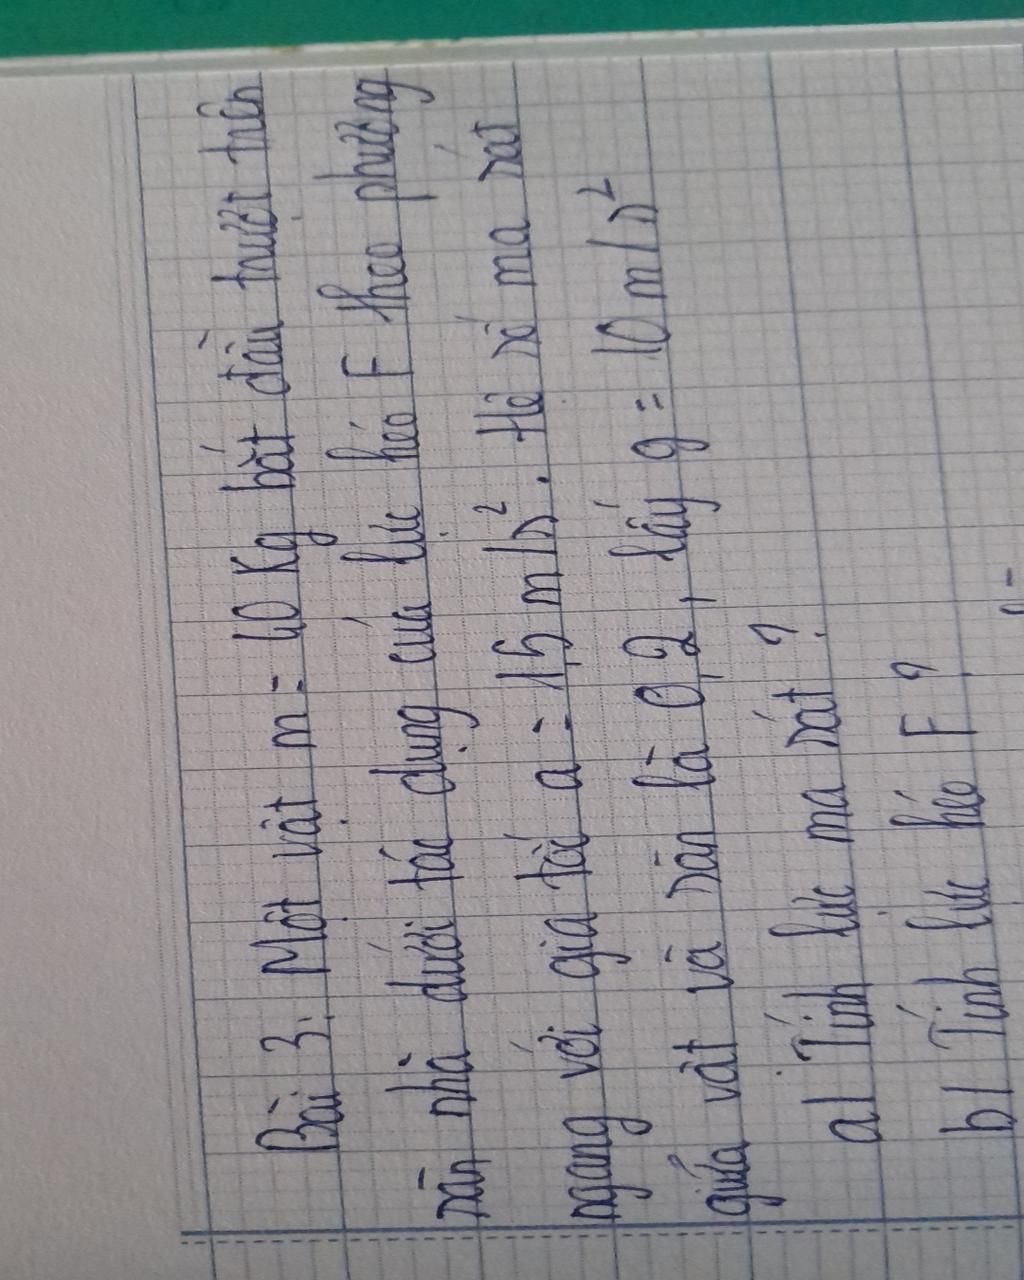 Bài 3: Một vật m = 40 Kg bắt đầu trượt trên
sàn nhà dưới tác dụng của lực kéo F theo phương
ngang với gia tốc a = 1,5 m/s². Hệ số ma sát
giữa vật và sàn là 0,2, lấy g = 10 m/s²
a/ Tính lực ma sát?
b/ Tính lực kéo F?